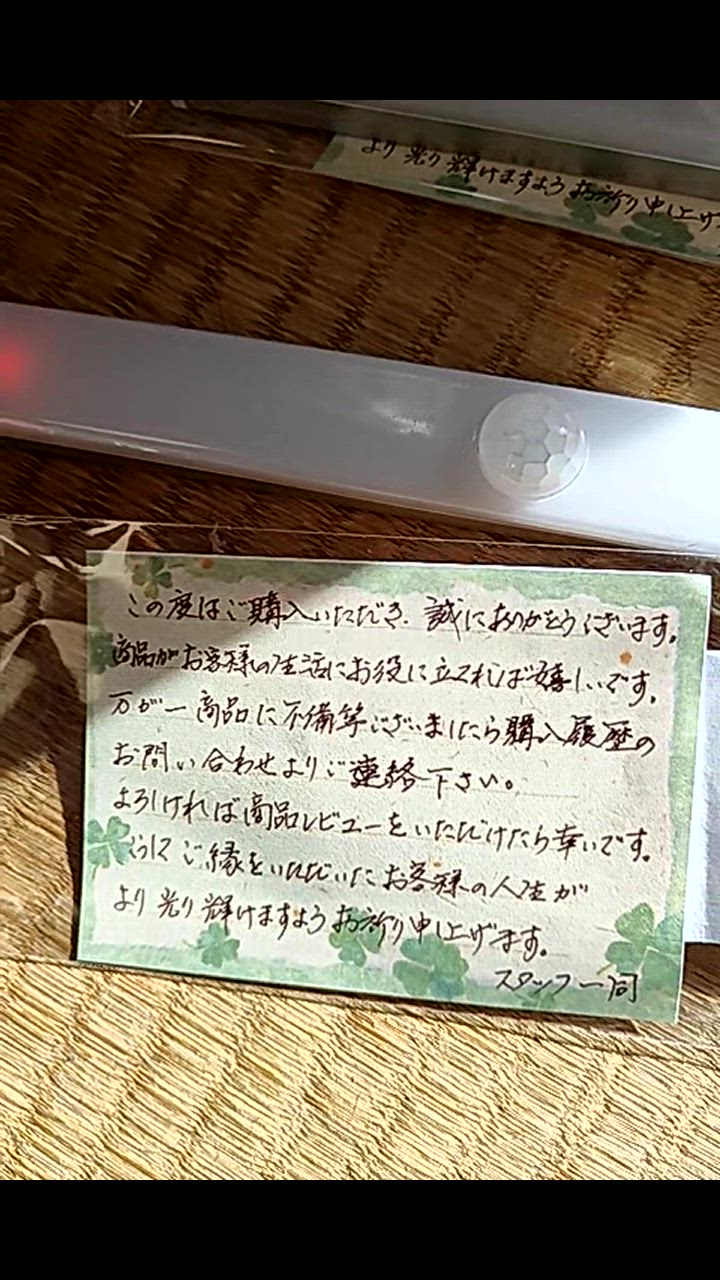 より光り輝けますようお祈り申し上げ
この度はご購入いただき、誠にありがとうございます。
商品がお客様の生活にお役に立てれば嬉しいです。
万が一商品に不備等ございましたら購入履歴の
お問い合わせよりご連絡下さい。
よろしければ商品レビューをいただけたら幸いです。
ご縁をいただいたお客様の人生が
より光り輝けますようお祈り申し上げます。
スタッフ一同